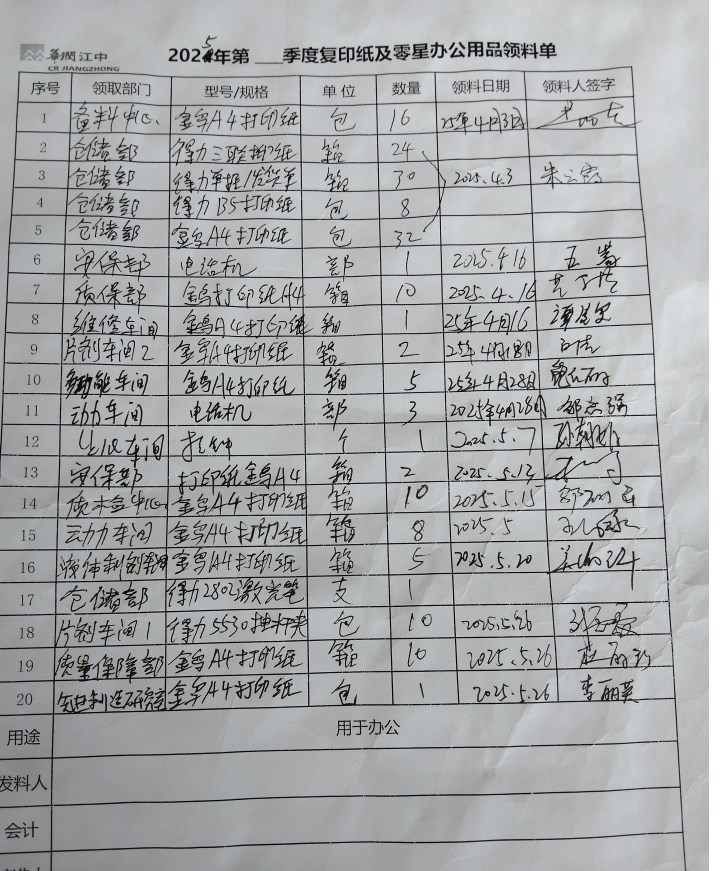 華润江中
CR JIANGZHONG
2025年第___季度复印纸及零星办公用品领料单
序号 领取部门 型号/规格 单位 数量 领料日期 领料人签字
1 备料中心 金鸟A4打印纸 包 16 25年4月3日
2 仓储部 得力三联打印纸 箱 24
3 仓储部 得力单推/发货单 箱 30 2025.4.3 朱云霞
4 仓储部 得力B5打印纸 包 8
5 仓储部 金鸟A4打印纸 包 32
6 安保部 电话机 部 1 2025.4.16
7 质保部 金鸟打印纸A4 箱 10 2025.4.16
8 维修车间 金鸟A4打印纸 箱 1 25年4月16
9 片剂车间2 金鸟A4打印纸 箱 2 25年4月18日
10 多功能车间 金鸟A4打印纸 箱 5 25年4月28日
11 动力车间 电话机 部 3 2025年4月28日
12 车间 个 1 2025.5.7
13 安保部 打印纸金鸟A4 箱 2 2025.5.13
14 质检中心 金鸟A4打印纸 箱 10 2025.5.15
15 动力车间 金鸟A4打印纸 箱 8 2025.5
16 液体制剂车间 金鸟A4打印纸 箱 5 2025.5.20
17 仓储部 得力2802激光笔 支 1
18 片剂车间1 得力5530抽杆夹 包 10 2025.5.26
19 质量保障部 金鸟A4打印纸 箱 10 2025.5.26
20 先进制造研究 金鸟A4打印纸 包 1 2025.5.26 李丽英
用途 用于办公
发料人
会计